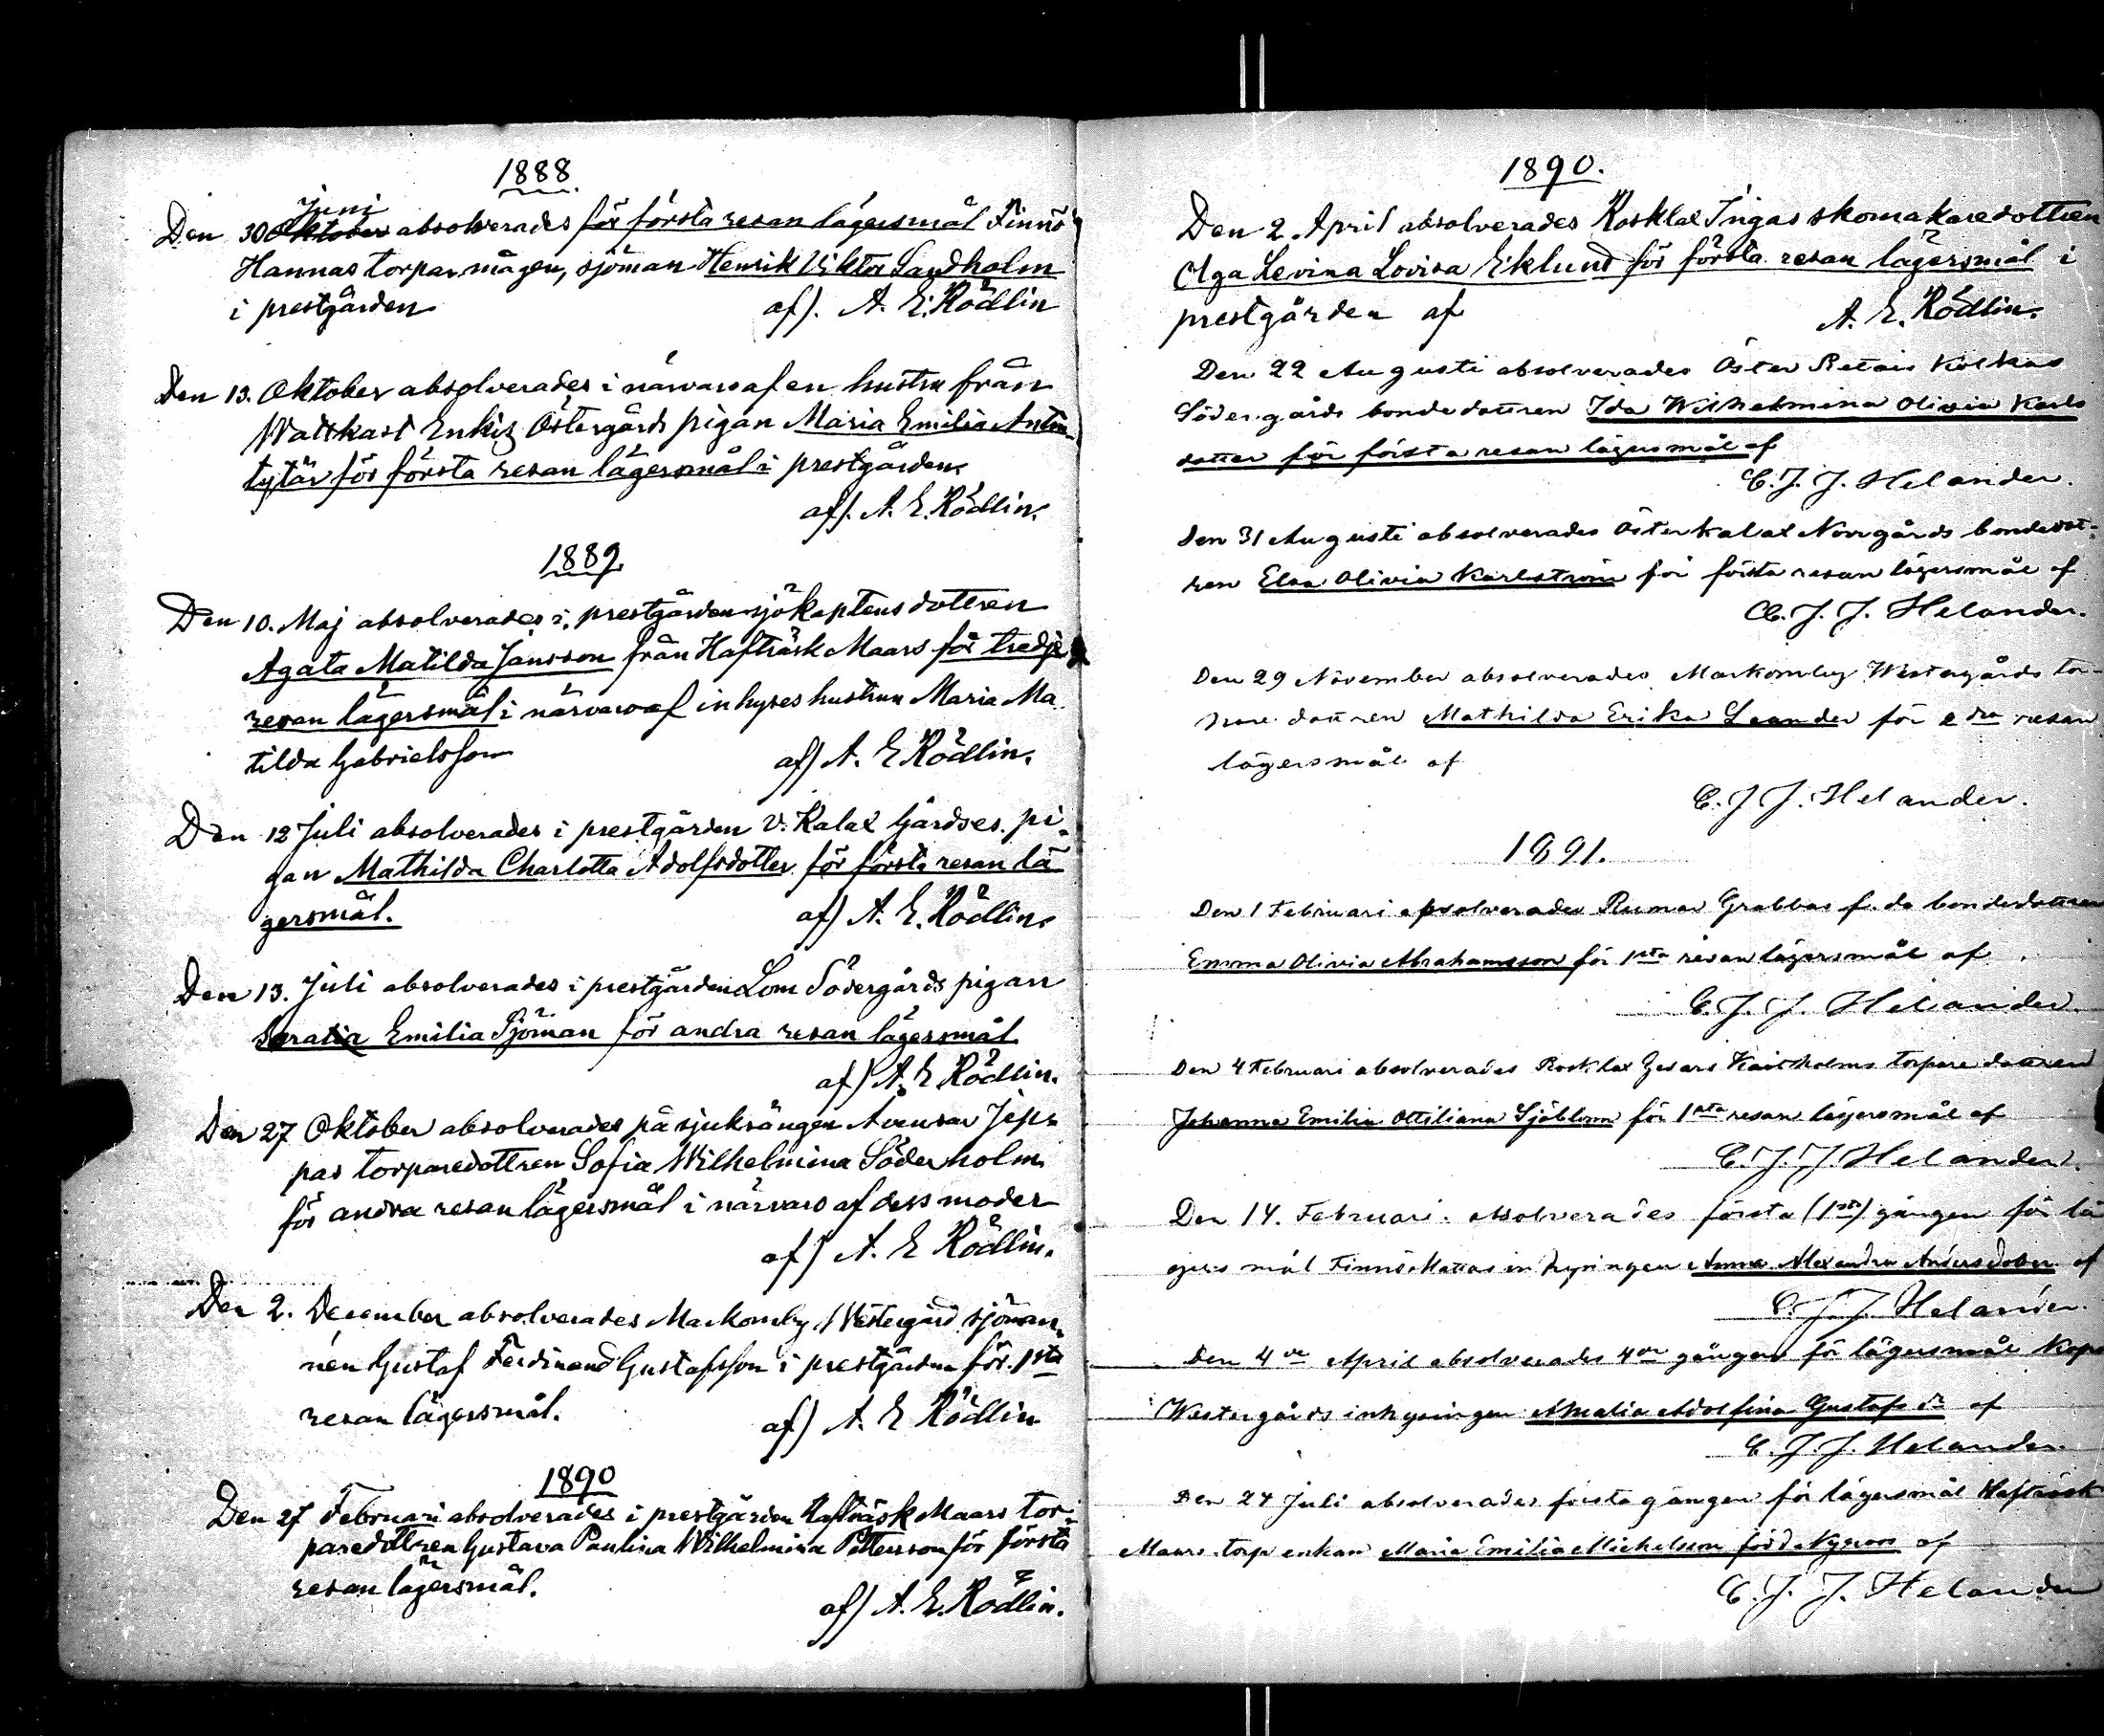 1888.
Juni
Den 30 Oktober absolverades för första resan lägersmål Finnö
Hannas torparmågen, sjöman Henrik Viktor Sandholm
i prestgården af). A. E. Rödlin
Den 13. Oktober absolverades i närvaro af en hustru från
Wattkast Enkis Östergårds pigan Maria Emilia Antin-
tytär för första resan lägersmål i prestgården.
af). A. E. Rödlin.
1889.
Den 10. Maj absolverades i prestgården sjökaptens dottren
Agata Matilda Jansson från Hafträsk Maars för tredje
resan lägersmål i närvaro af inhyses hustrun Maria Ma
tilda Gabrielsson af) A. E Rödlin.
Den 12 Juli absolverades i prestgården V. Kalax Gärdses. pi-
gan Mathilda Charlotta Adolfsdotter för första resan lä
gersmål. af) A. E. Rödlin.
Den 13. Juli absolverades i prestgården Lom Södergårds pigan
Emilia Sjöman för andra resan lägersmål
af) A. E Rödlin.
Den 27 Oktober absolverades på sjuksängen Avensar Jep-
pas torparedottren Sofia Wilhelmina Söderholm
för andra resan lägersmål i närvaro af dess moder
af) A. E Rödlin.
Den 2. December absolverades Markomby Westergård sjöman-
nen Gustaf Ferdinand Gustafsson i prestgården för 1sta
resan lägersmål. af) A. E Rödlin
1890
Den 27 Februari absolverades i prestgården Hafträsk Maars tor-
paredottren Gustava Paulina Wilhelmina Pettersson för första
resan lägersmål. af) A. E. Rödlin.
1890.
Den 2. April absolverades Rosklax Ingas skomakaredottren
Olga Levina Lovisa Eklund för första resan lägersmål i
prestgården af A. E. Rödlin.
Den 22 Augusti absolverades Öster Retais Kolkas
Södergårds bondedottren Ida Wilhelmina Olivia Karls
dotter för första resan lägersmål af
C. J. J. Helander.
Den 31 Augusti absolverades Österkalax Norrgårds bondedot-
ren Elsa Olivia Karlström för första resan lägersmål af
C. J. J. Helander.
Den 29 November absolverades Markomby Westergårds tor-
pare dottren Mathilda Erika Leander för 2dra resan
lägersmål af
C. J. J. Helander.
1891.
Den 1 Februari absolverades Rumar Grabbas f. da bondedottren
Emma Olivia Abrahamsson för 1sta resan lägersmål af
C. J. J. Helander.
Den 4 Februari absolverades Rosklax torpare dottren
Johanna Emilia Ottiliana Sjöblom för 1sta resan lägersmål af
C. J. J. Helander.
Den 14. Februari absolverades första (1sta) gången för lä
gersmål Finnö Mattas inhysingen Anna Alexandra Andersdotter af
C. J. J. Helander.
Den 4de April absolverades 4de gången för lägersmål
Westergårds inhysingen Amalia Adolfina Gustafs dr af
C. J. J. Helander.
Den 24 Juli absolverades första gången för lägersmål Hafträsk
Maars torp enkan Maria Emilia Michelsson född Nyroos af
C. J. J. Helander